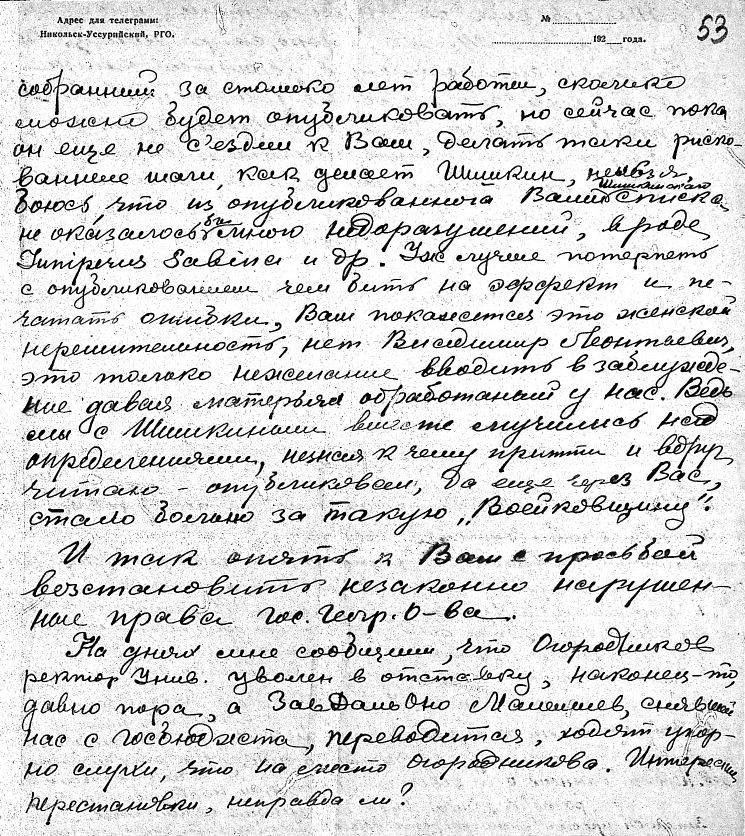 Адрес для телеграмм:
Никольск-Уссурийский, РГО.
№
192 года.
53
собранный за столько лет работы, сколько
можно будет опубликовать, но сейчас пока
он еще не с'ездил к Вам, делать таки риско-
ванные шаги, как делает Шишкин, нельзя,
боюсь, что из опубликованного Вами Шишкинского списка
не оказалось бы много недоразумений, вроде
Juniperus Sabina и др. Уж лучше потерпеть
с опубликованием чем бить на эффект и пе-
чатать ошибки, Вам покажется это женской
нерешительность, нет Владимир Леонтьевич,
это только нежелание вводить в заблужде-
ние давая матерьял обработаный у нас. Ведь
мы с Шишкиным вместе мучились над
определениями, незная к чему притти и вдруг
читаю - опубликовал, да еще через Вас,
стало больно за такую „Воейковщину".
И так опять к Вам с просьбой
возстановить незаконно нарушен-
ные права Гос. Геогр. О-ва.
На днях мне сообщили, что Огородников
ректор Унив. уволен в отставку, наконец-то,
давно пора, а ЗавДальОно Малышев, снявший
нас с Госбюджета, переводится, ходят упор-
но слухи, что на место Огородникова. Интересные
перестановки, неправда ли?